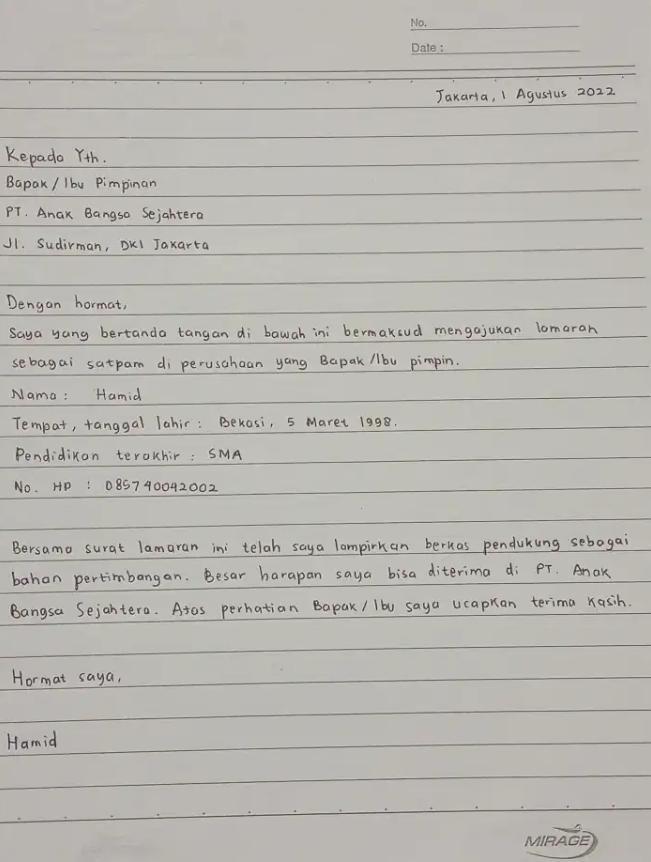 No.
Date :
Jakarta, 1 Agustus 2022
Kepada Yth.
Bapak / Ibu Pimpinan
PT. Anak Bangsa Sejahtera
Jl. Sudirman, DKI Jakarta
Dengan hormat,
Saya yang bertanda tangan di bawah ini bermaksud mengajukan lamaran
sebagai satpam di perusahaan yang Bapak /Ibu pimpin.
Nama : Hamid
Tempat, tanggal lahir : Bekasi, 5 Maret 1998.
Pendidikan terakhir : SMA
No. HP : 085740042002
Bersama surat lamaran ini telah saya lampirkan berkas pendukung sebagai
bahan pertimbangan. Besar harapan saya bisa diterima di PT. Anak
Bangsa Sejahtera. Atas perhatian Bapak / Ibu saya ucapkan terima kasih.
Hormat saya,
Hamid
MIRAGE